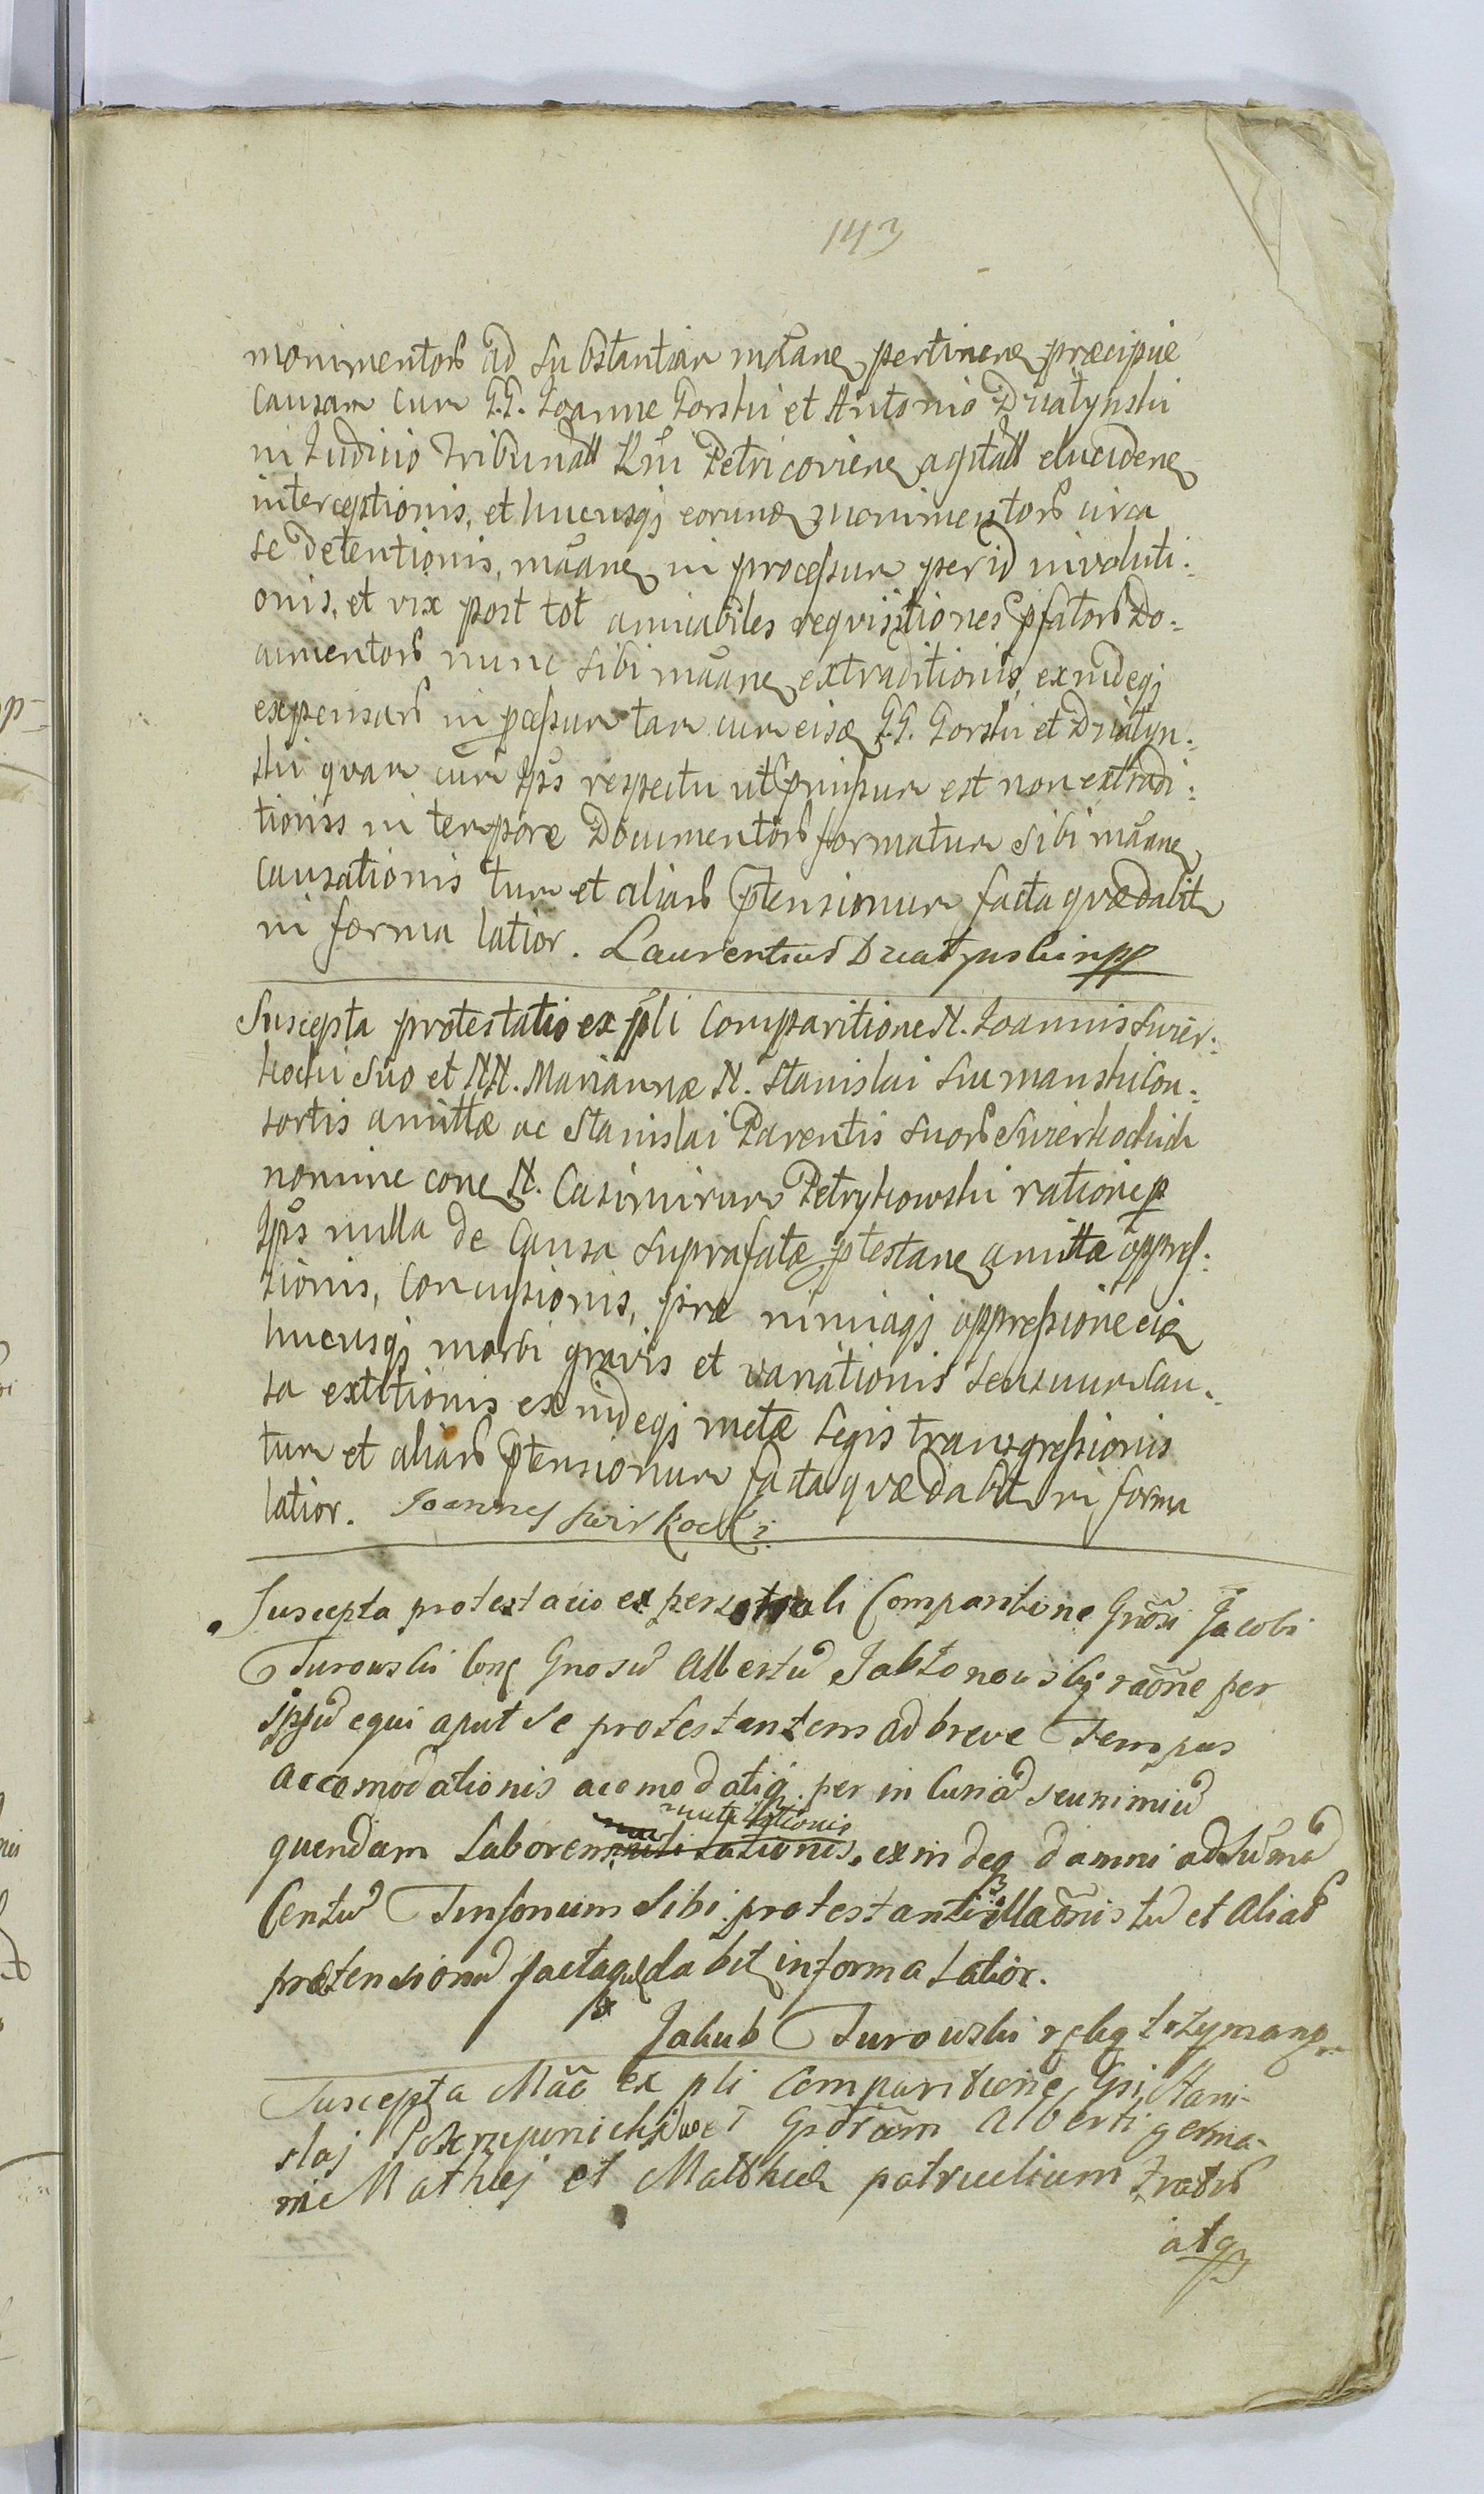 143
monimentorum ad substantiam mãtane pertinen præcipue
causam cum G.G. Joanne Gorski et Antonio Dziatynski
in Judicio Tribunall Rni Petricovien agitall elucidene
interceptionis, et hucusq; eorund monimentorum circa
se detentionis, mãane in processum per id involuti:
onis, et vix post tot amicabiles requisitiones pfatorum Do:
cumentorum nunc sibi mãane extraditionis, exindeq;
expensarum in pcessum tam cum eisd G.G. Gorski et Dziatyn:
ski quam cum Ips respectu ut pmissum est non extradi:
tioniss in tempore Documentorum formatum sibi mãane
causationis tum et aliarum ptensionum facta quæ dabit
in forma latior. Laurentius Dziatynski mpp
Suscepta protestatio ex pli Comparitione N. Joannis Swier:
kocki suo et NN. Mariannæ N. Stanislai Szumanski Con:
sortis amittæ ac Stanislai Parentis suorum Swierkockich
nomine cone N. Casimirum Petrykowski ratione p
Ips nulla de Causa suprafatæ ptestane amittæ oppres:
sionis, Concussionis, præ nimiaq; oppressione eid
hucusq; morbi gravis et variationis sensuum cau:
sa extitionis exindeq; metæ Legis transgressionis
tum et aliarum ptensionum facta quæ dabit in forma
latior. Joannes Swirkocki
Suscepta protestacio ex personali Comparitione Gnosi Jacobi
Turowski Cone Gnosum Albertum Jabłonowski raone per
ipsum equi aput se protestantem ad breve Tempus
accomodationis acomodatiq; per in Curiam seu nimium
quendam Laborem mutilationis, exindeq damni ad summam
Centum Tinfonum sibi protestanti illaonis tum et aliarum
prætensionum factaque dabit in forma latior.
Jakub Turowski ręką trzymaną
Suscepta Mãa ex pli Comparitione Gsi Stani-
slaj et Gnorum Alberti germa-
ni Mathej et Matthiæ patruelium fratrum
atq;